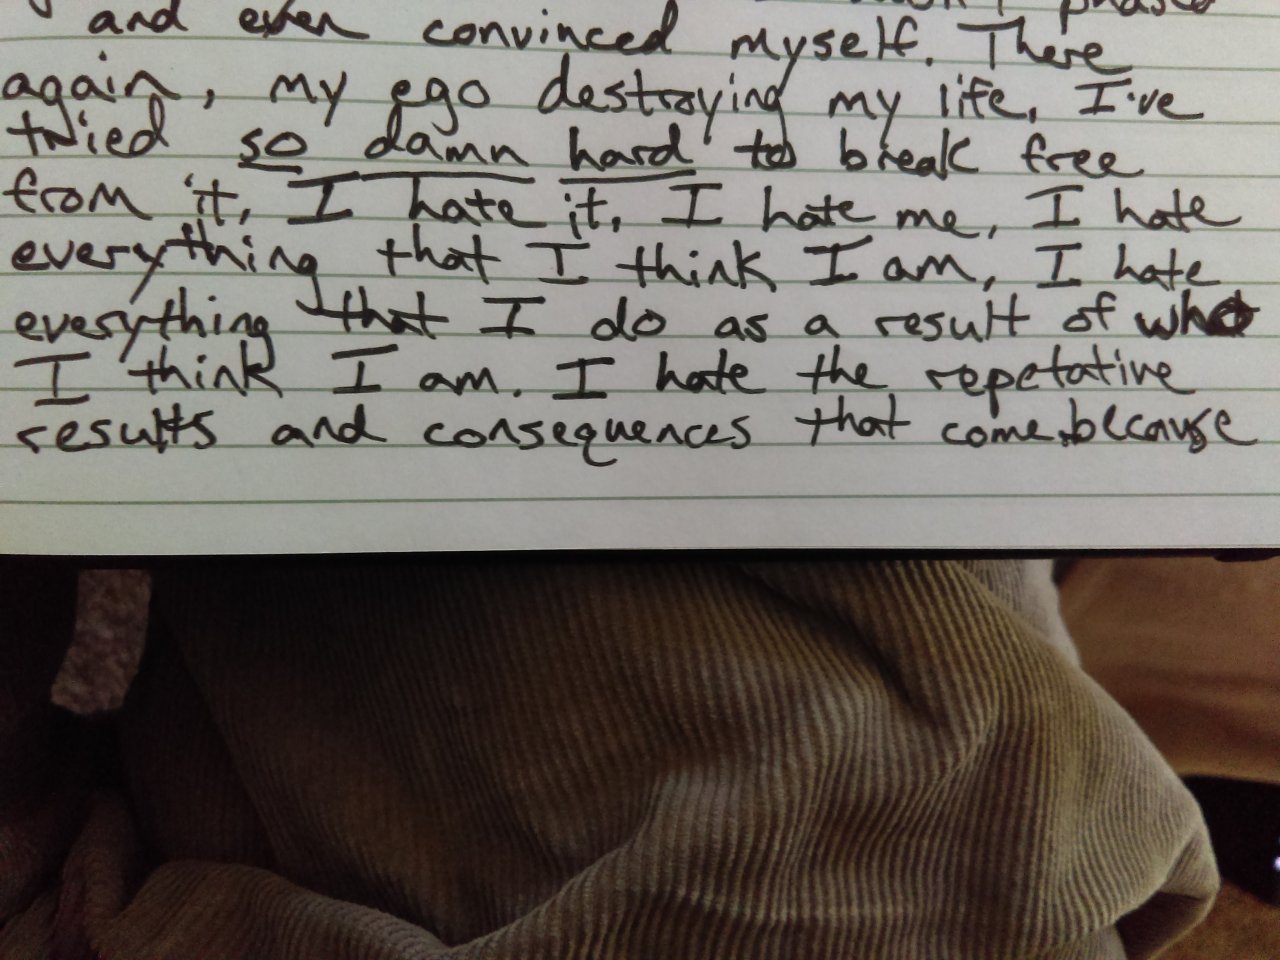 and even convinced myself. There
again, my ego destroying my life, I've
tried so damn hard to break free
from it, I hate it, I hate me, I hate
everything that I think I am, I hate
everything that I do as a result of who
I think I am. I hate the repetative
results and consequences that come because